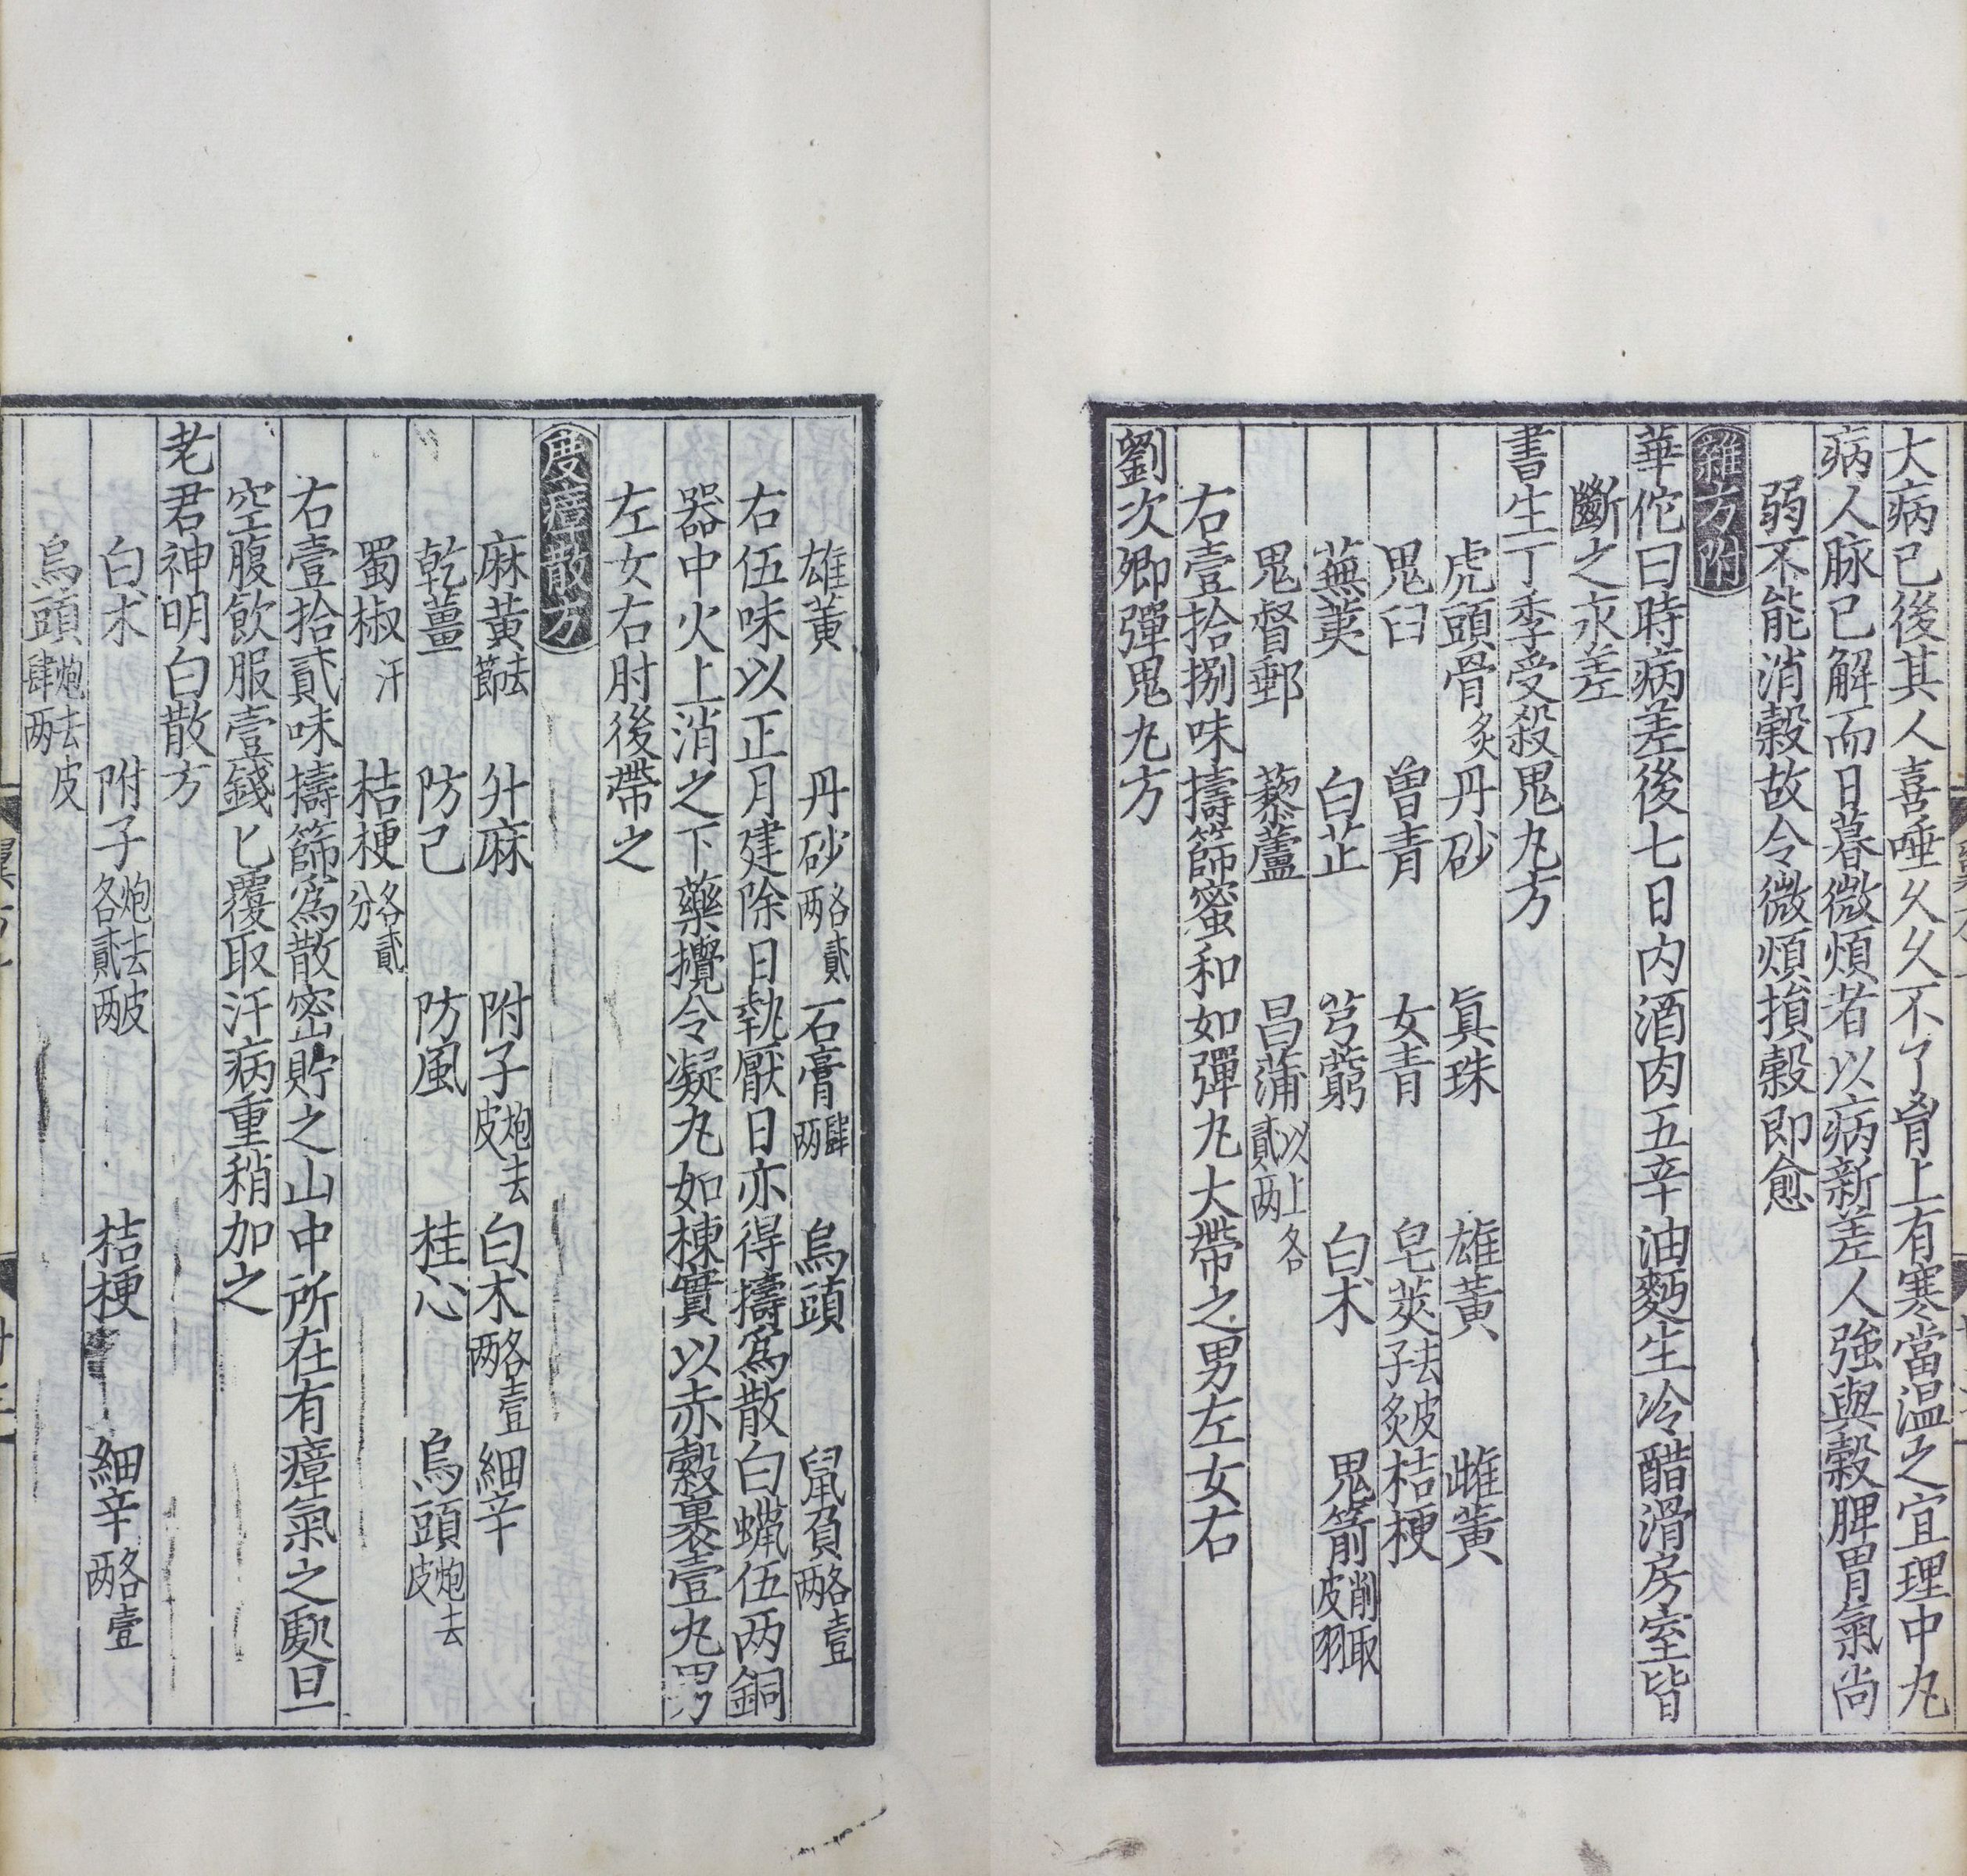 大病已後其人喜唾久久不了胷上有寒當温之宜理中丸
病人脉已解而日暮微煩者以病新差人強與穀脾胃氣尚
弱不能消穀故令微煩損穀即愈
雜方附
華佗曰時病差後七日内酒肉五辛油麪生冷醋滑房室皆
斷之永差
書生丁季受殺鬼丸方
虎頭骨炙 丹砂 眞珠 雄黃 雌黃
鬼臼 曾青 女青 皂莢去皮子炙 桔梗
蕪荑 白芷 芎藭 白术 鬼箭削取皮羽
鬼督郵 藜蘆 昌蒲以上各貳两
右壹拾捌味擣篩蜜和如彈丸大帶之男左女右
劉次卿彈鬼丸方
雄黃 丹砂各貳两 石膏肆两 烏頭 鼠負各壹两
右伍味以正月建除日執厭日亦得擣爲散白蠟伍两銅
器中火上消之下藥攪令凝丸如楝實以赤縠裹壹丸男
左女右肘後帶之
度瘴散方
麻黃去節 升麻 附子炮去皮 白术各壹两 細辛
乾薑 防己 防風 桂心 烏頭炮去皮
蜀椒汗 桔梗各貳分
右壹拾貳味擣篩爲散密貯之山中所在有瘴氣之處旦
空腹飲服壹錢匕覆取汗病重稍加之
老君神明白散方
白术 附子炮去皮各貳两 桔梗 細辛各壹两
烏頭炮去皮肆两